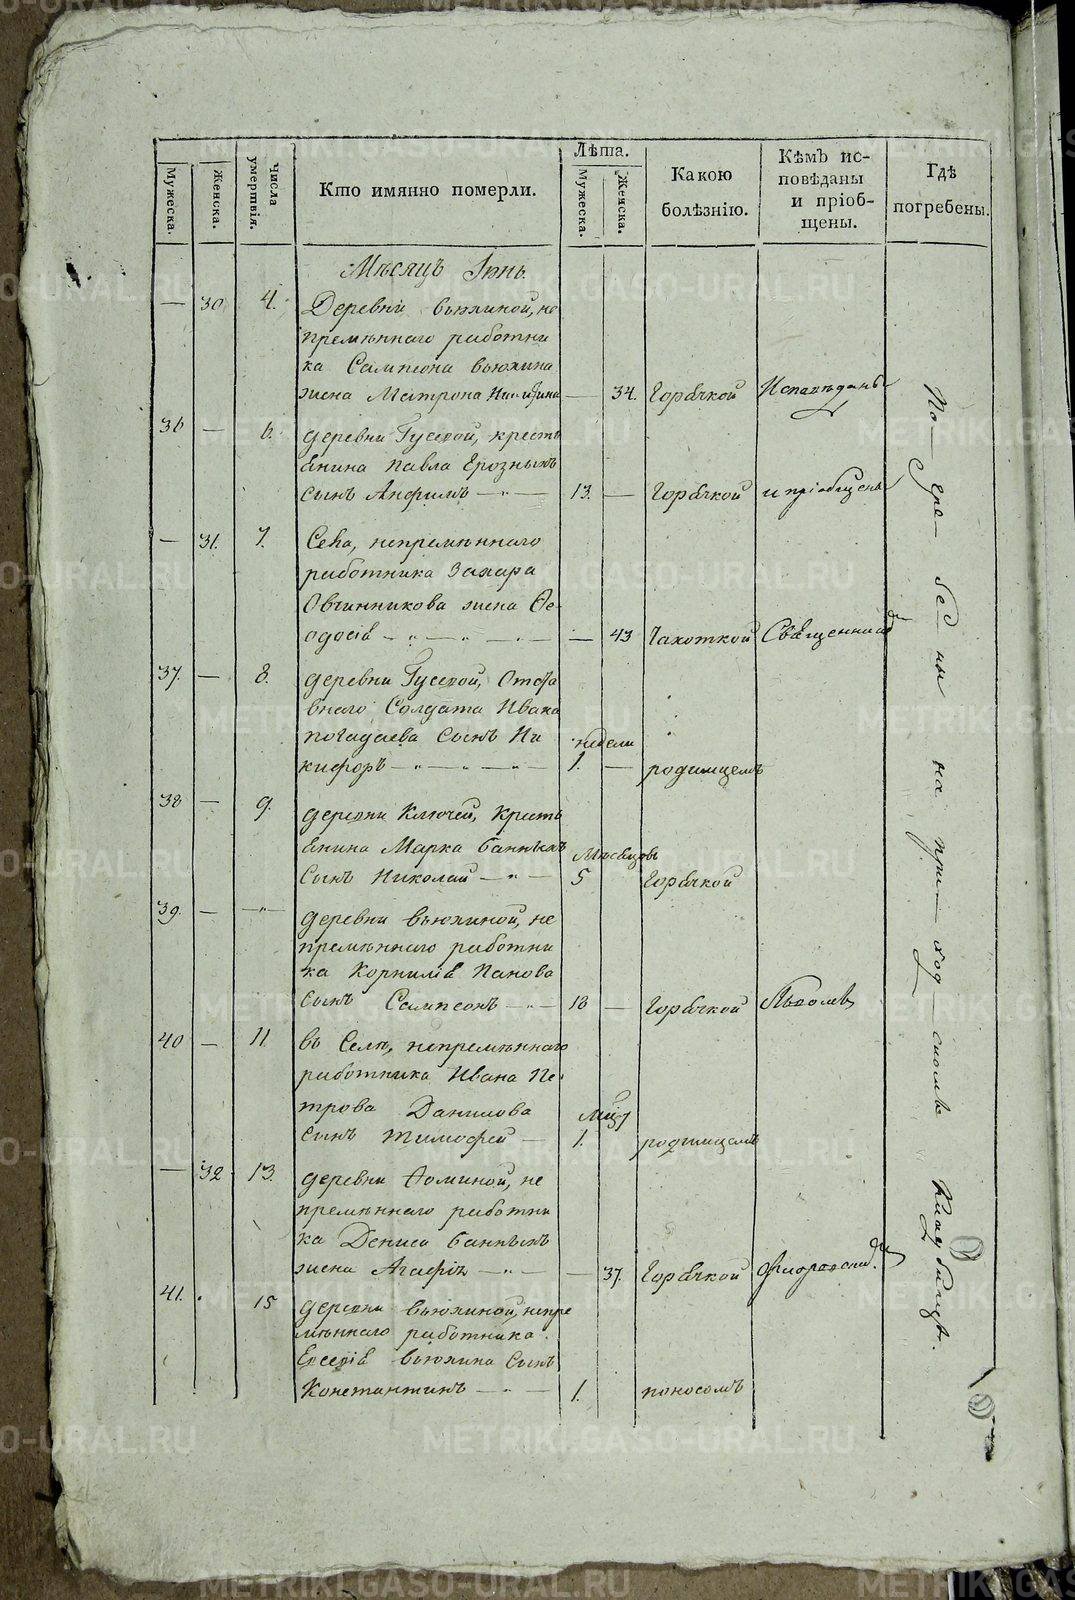 Мужеска.
Женска.
Числа умертвія.
Кто имянно померли.
Лѣта.
Мужеска.
Женска.
Какою болѣзнію.
Кѣмъ исповѣданы и пріобщены.
Гдѣ погребены.
Мѣсяцъ Іюнь.
— 30 4. Деревни Вьюхиной, не
премѣннаго работни
ка Сампсона Вьюхина
жена Матрона — 34. Горячкой Исповѣданы
36 — 6. деревни Гусевой, кресть
янина Павла Ерозныхъ
сынъ Анфимъ — 13. — Горячкой и пріобщены
— 31. 7. Села, непремѣннаго
работника Захара
Овчинникова жена Ѳе-
одосія — 43 Чахоткой Священник
37. — 8. деревни Гусевой, Отста
внаго Солдата Ивана
Погадаева Сынъ Ни недели
кифоръ — 1. — родимцемъ
38 — 9. деревни Ключей, Кресть
янина Марка Банныхъ Мѣсяцовъ
Сынъ Николай — 5 Горячкой
39. — деревни Вьюхиной, не
премѣннаго работни
ка Корнилія Панова
сынъ Сампсонъ — 18 — Горячкой
40 — 11. въ Селѣ, непремѣннаго
работника Ивана Пе-
трова Данилова
сынъ Тимофей — 1. родимцемъ
— 32 13. деревни Ѳоминой, не
премѣннаго работни
ка Дениса Банныхъ
жена Агафія — 37. Горячкой
41. 15 деревни Вьюхиной, непре
мѣннаго работника
Евсевія Вьюхина Сынъ
Константинъ — 1. поносомъ
Погребены на приходскомъ Кладбищѣ.
METRIKI.GASO-URAL.RU